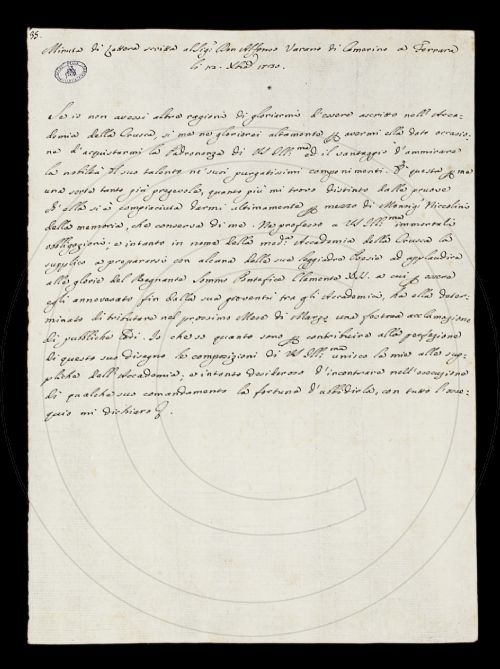 35.
Minuta di Lettera scritta al Sigr. Don Alfonso Varano di Camerino a Ferrara
li 12. 1730.
Se io non avessi altra ragione di gloriarmi d'essere ascritto nell'Acca=
demia della Crusca, si me ne gloriarei altamente avermi ella dato occasio=
ne d'acquistarmi la Padronanza di ed il vantaggio d'ammirare
la nobiltà del suo talento ne' suoi purgatissimi componimenti. E questa
una sorta tanto più pregevole, quanto più mi trovo distinto dalle pruove
ch'ella si è compiaciuta darmi ultimamente mezzo di Niccolini
della memoria, che conserva di me. Ne professo a immortali
obbligazioni; e intanto in nome della Accademia della Crusca la
supplico a prepararsi con alcuna delle sue leggiadre Poesie ad applaudire
alle glorie del Regnante Sommo Pontefice Clemente XII. a cui essere
egli annoverato fin dalla sua gioventù tra gli Accademici, ha ella deter=
minato di tributare nel prossimo Mese di Marzo una festosa acclamazione
di pubbliche Lodi. Io che so quanto sono contribuire alla perfezione
di questo suo disegno le composizioni di unisco la mia alle sup=
pliche dell'Accademia; e intanto desideroso d'incontrare nell'esecuzione
di qualche suo comandamento la fortuna d'ubbidirla, con tutto l'osse=
quio mi dichiaro